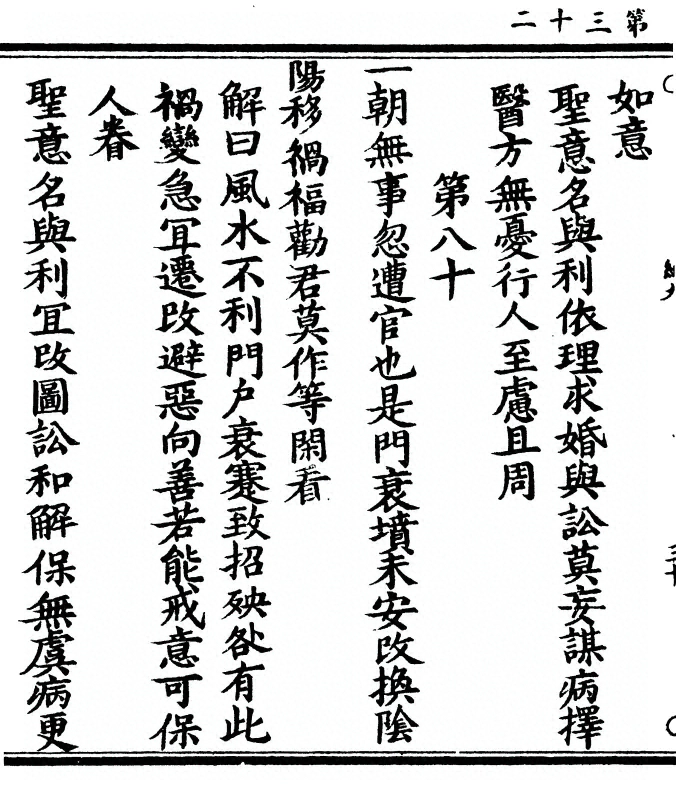 第三十二
如意
聖意名與利依理求婚與訟莫妄謀病擇
醫方無憂行人至慮且周
第八十
一朝無事忽遭官也是門衰墳未安改換陰
陽移禍福勸君莫作等閑看
解曰風水不利門户衰蹇致招殃咎有此
禍變急冝遷改避惡向善若能戒意可保
人眷
聖意名與利冝改圖訟和解保無虞病更